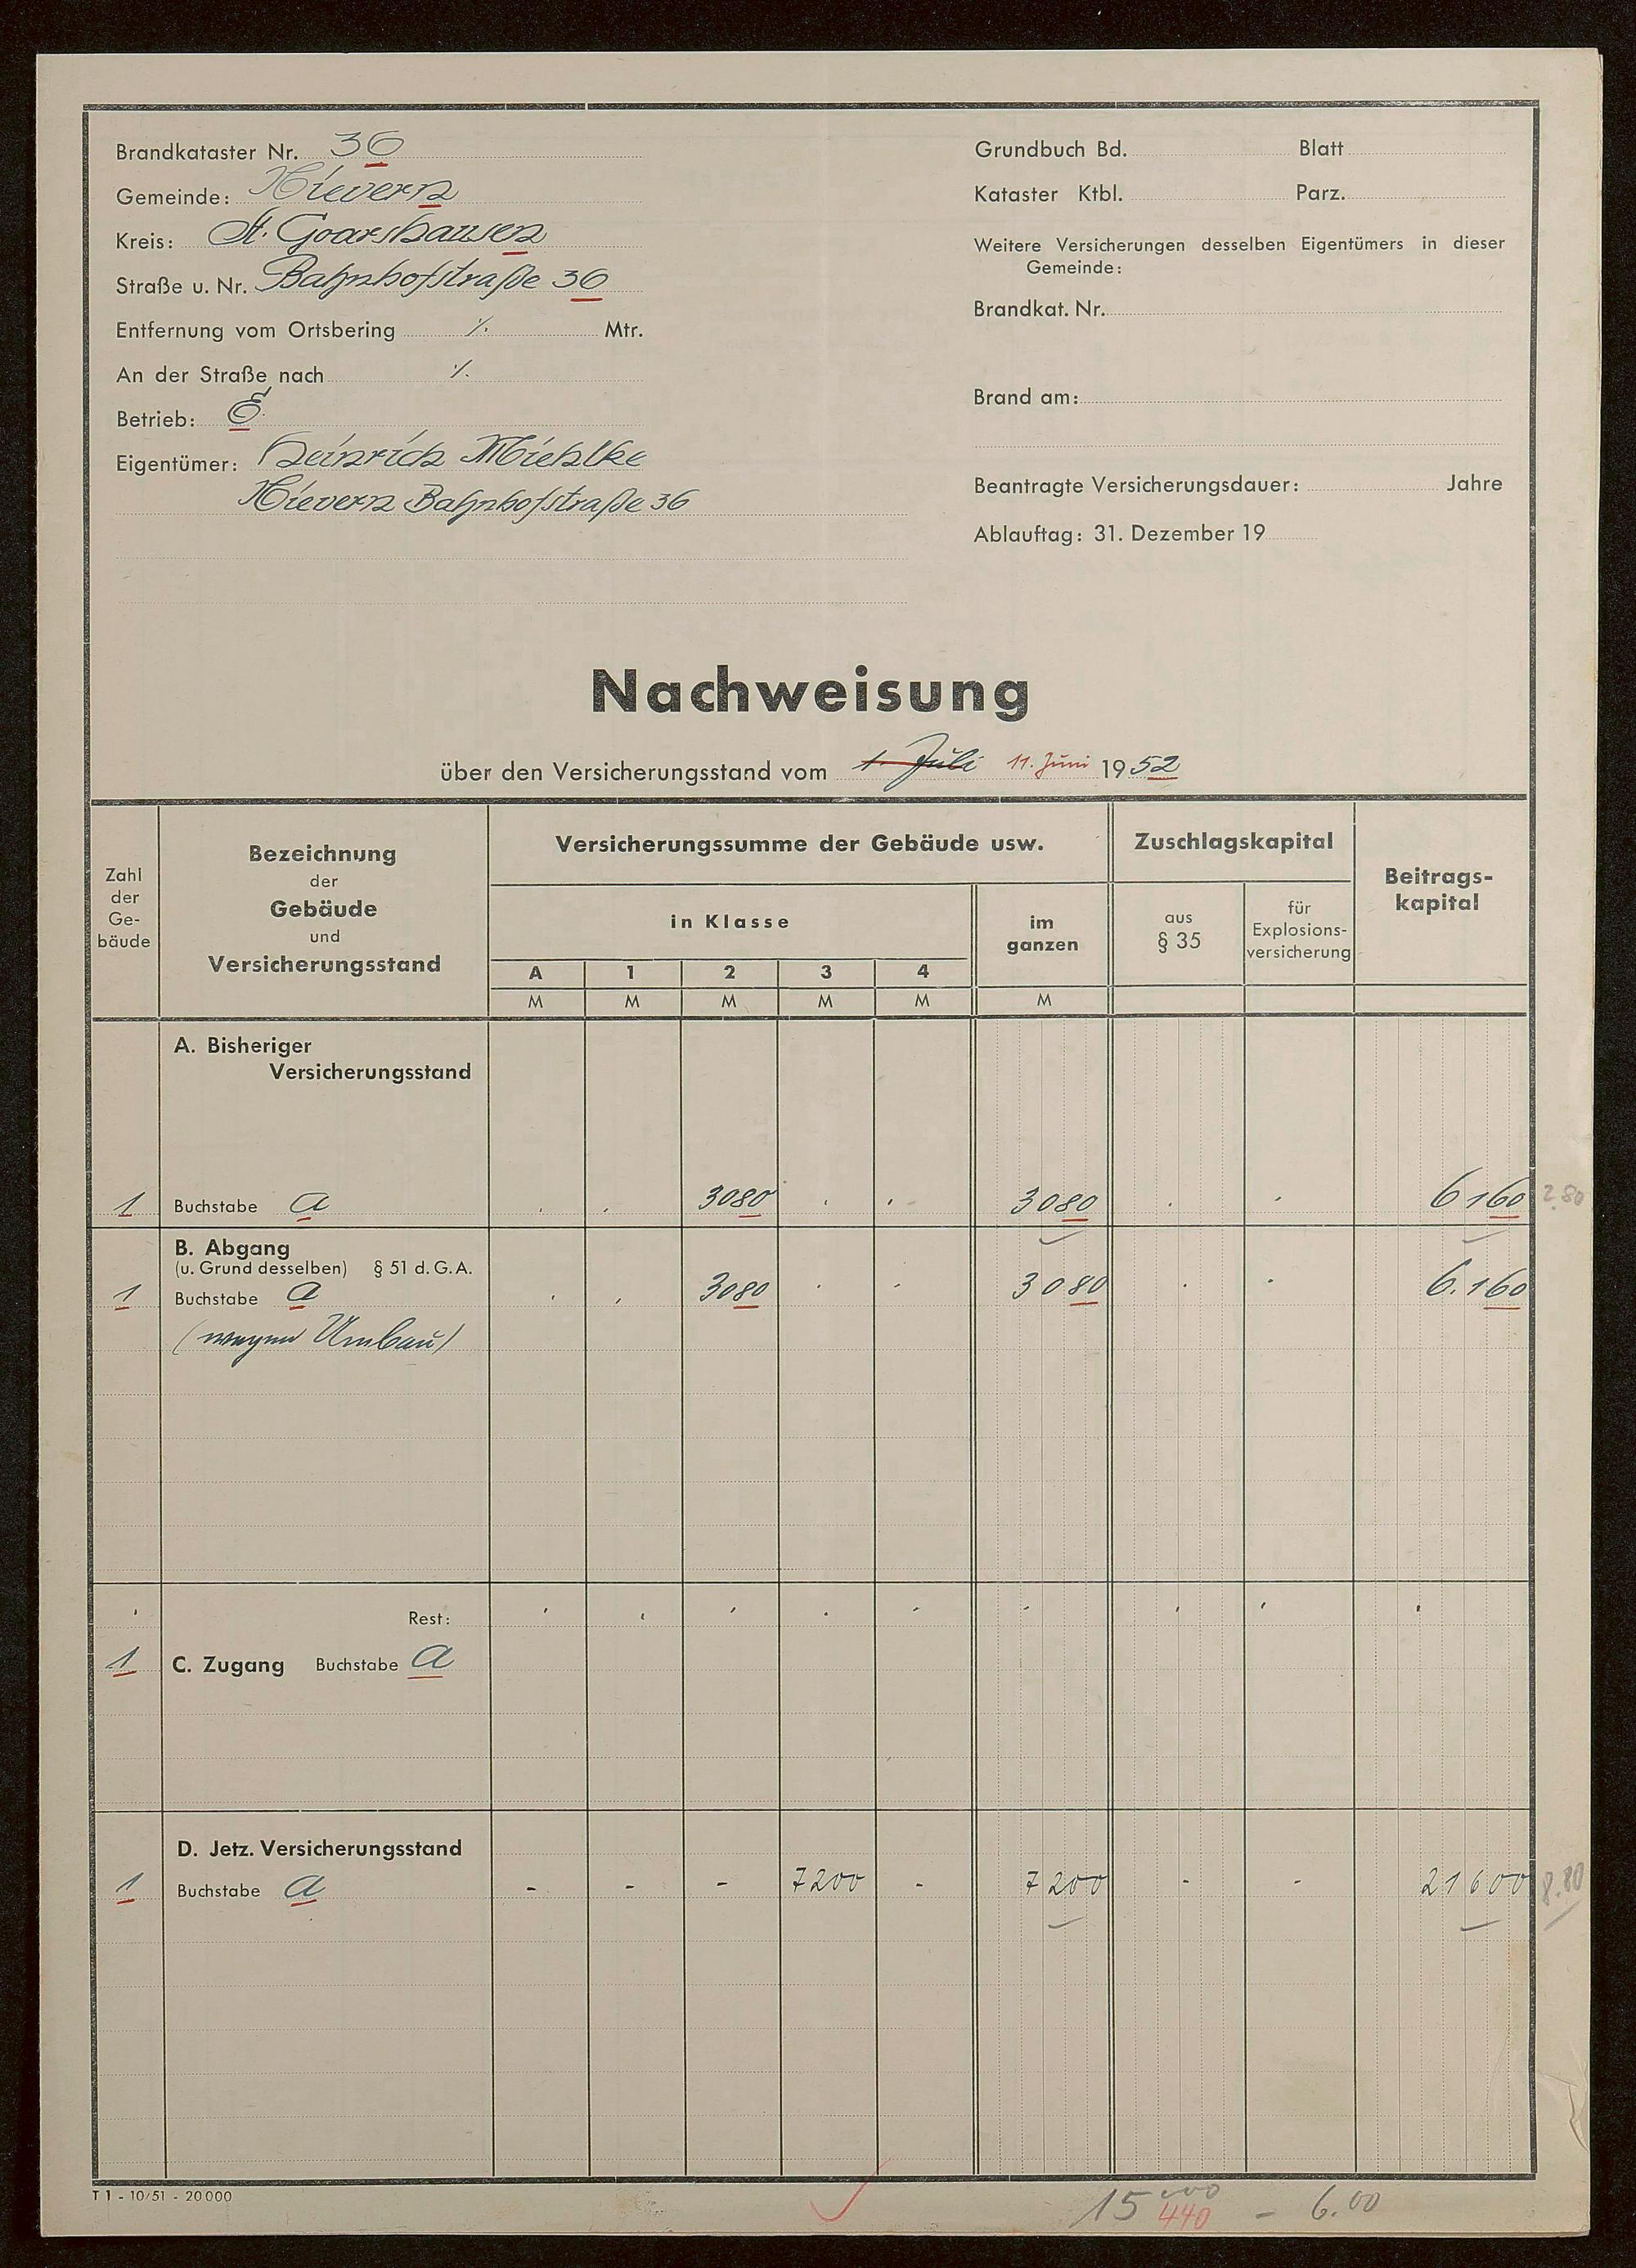 Brandkataster Nr. 36
Gemeinde: Nievern
Kreis: St. Goarshausen
Straße u. Nr. Bahnhofstraße 36
Entfernung vom Ortsbering ./. Mtr.
An der Straße nach ./.
Betrieb:
Eigentümer: Heinrich Miehlke
Nievern Bahnhofstraße 36
Grundbuch Bd. Blatt
Kataster Ktbl. Parz.
Weitere Versicherungen desselben Eigentümers in dieser
Gemeinde:
Brandkat. Nr.
Brand am:
Beantragte Versicherungsdauer: Jahre
Ablauftag: 31. Dezember 19
Nachweisung
über den Versicherungsstand vom 1. Juli 11. Juni 1952
Zahl
der
Ge-
bäude
Bezeichnung
der
Gebäude
und
Versicherungsstand
Versicherungssumme der Gebäude usw.
in Klasse
A 1 2 3 4
M M M M M
im
ganzen
M
Zuschlagskapital
aus
§ 35
für
Explosions-
versicherung
Beitrags-
kapital
A. Bisheriger
Versicherungsstand
1 Buchstabe a 3080 3080 6160 2.80
B. Abgang
(u. Grund desselben) § 51 d. G. A.
1 Buchstabe a 3080 3080 6.160
(wegen Umbau)
Rest:
1 C. Zugang Buchstabe a
D. Jetz. Versicherungsstand
1 Buchstabe a - - - 7200 - 7200 - - 21600 8.80
T 1 - 10/51 - 20000
15 440 - 6.00